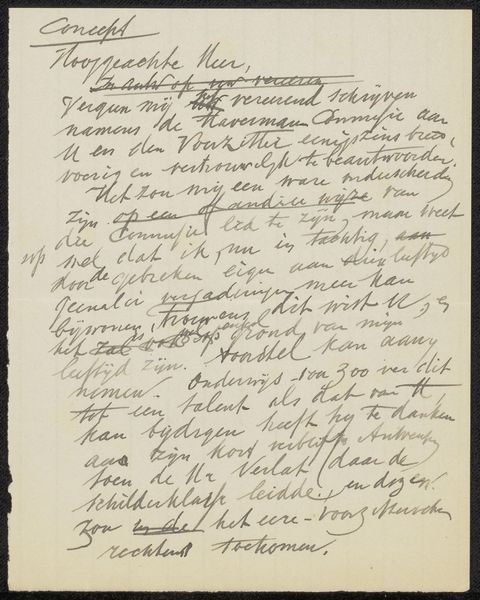 Concept
Hooggeachte Heer,
In antw. op uw vereerend
Vergun mij het vereerend schrijven
namens de Haverman Commissie aan
U en den Voorzitter eenigszins
voerig en vertrouwelijk te beantwoorden.
Het zou mij een ware onderscheiding
zijn op een of andere wijze van
die Commissie lid te zijn, maar weet
wel dat ik, nu in tachtig, aan
door de gebreken eigen aan leeftijd
geenerlei vergaderingen meer kan
bijwonen, trouwens dit wist U, en
het zal ook op grond van mijn
leeftijd zijn. voorstel kan aan
nemen. Onderwijs voor zoo ver dit
tot een talent als dat van H,
kan bijdragen heeft hij te danken
aan zijn kort verblijf Antwerpen
toen de Hr Verlat daar de
schilderklasse leidde, en dezen
zou in de het eere-voorzitterschap
rechtens toekomen.